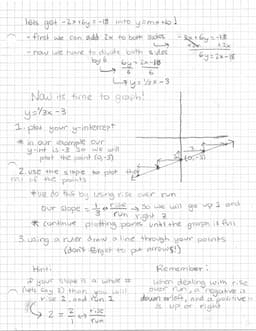 lets get -2x+6y=-18 into y=mx+b!
- first we can add 2x to both sides
-2x+6y=-18
+2x +2x
6y=2x-18
- now we have to divide both sides by 6
6y = 2x-18
6 6
y= 1/3x-3
Now its time to graph!
y=1/3x-3
1. plot your y-intercept
* in our example our
y-int is -3 so we will
plot the point (0,-3)
(0,-3)
2. use the slope to plot
of the points
*we do this by using rise over run
our slope = 1/3 rise/run → So we will go up 1 and
right 3
* continue plotting points until the graph is full
3. using a ruler draw a line through your points
(don't forget to put arrows!)
Hint:
if your slope is a whole #
(lets say 2) than you will
rise 2, and run 1
2 = 2/1 rise/run
Remember:
when dealing with rise
over run, a negative is
down or left, and a positive
is up or right